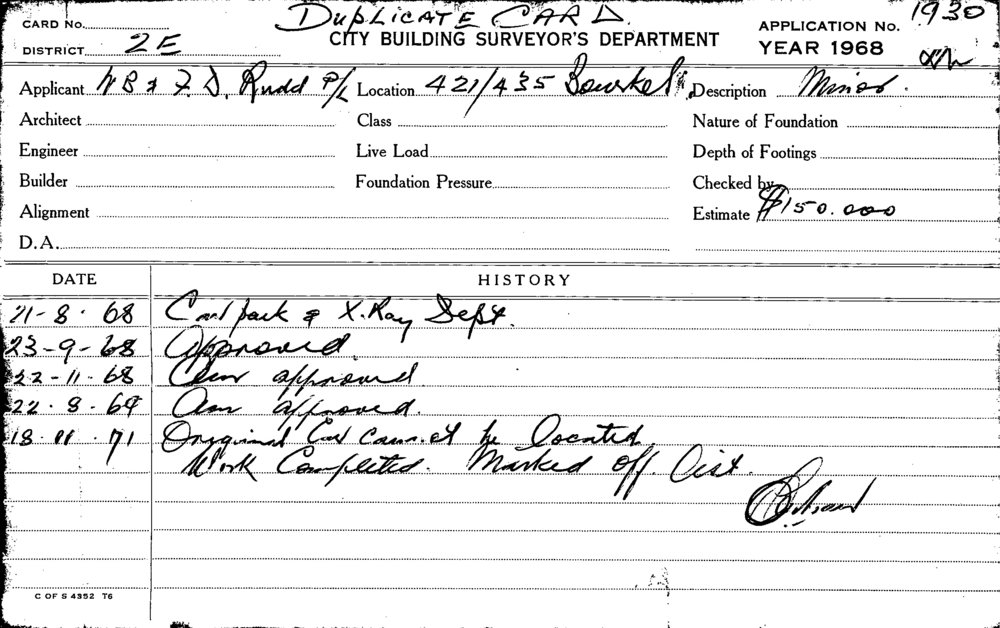 DUPLICATE CARD.
CARD No.
CITY BUILDING SURVEYOR'S DEPARTMENT
APPLICATION No. 1930
DISTRICT 2E
YEAR 1968
Applicant W B & F. D. Rudd P/L Location 421/435 Bourke St. Description Minor.
Architect Class Nature of Foundation
Engineer Live Load Depth of Footings
Builder Foundation Pressure Checked by
Alignment Estimate $150.000
D.A.
DATE HISTORY
21-8-68 Car park & X.Ray Dept.
23-9-68 Approved.
22-11-68 Am approved.
22.8.69 Am approved.
18.11.71 Original Card cannot be located
Work Completed. Marked off list.
C OF S 4352 T6